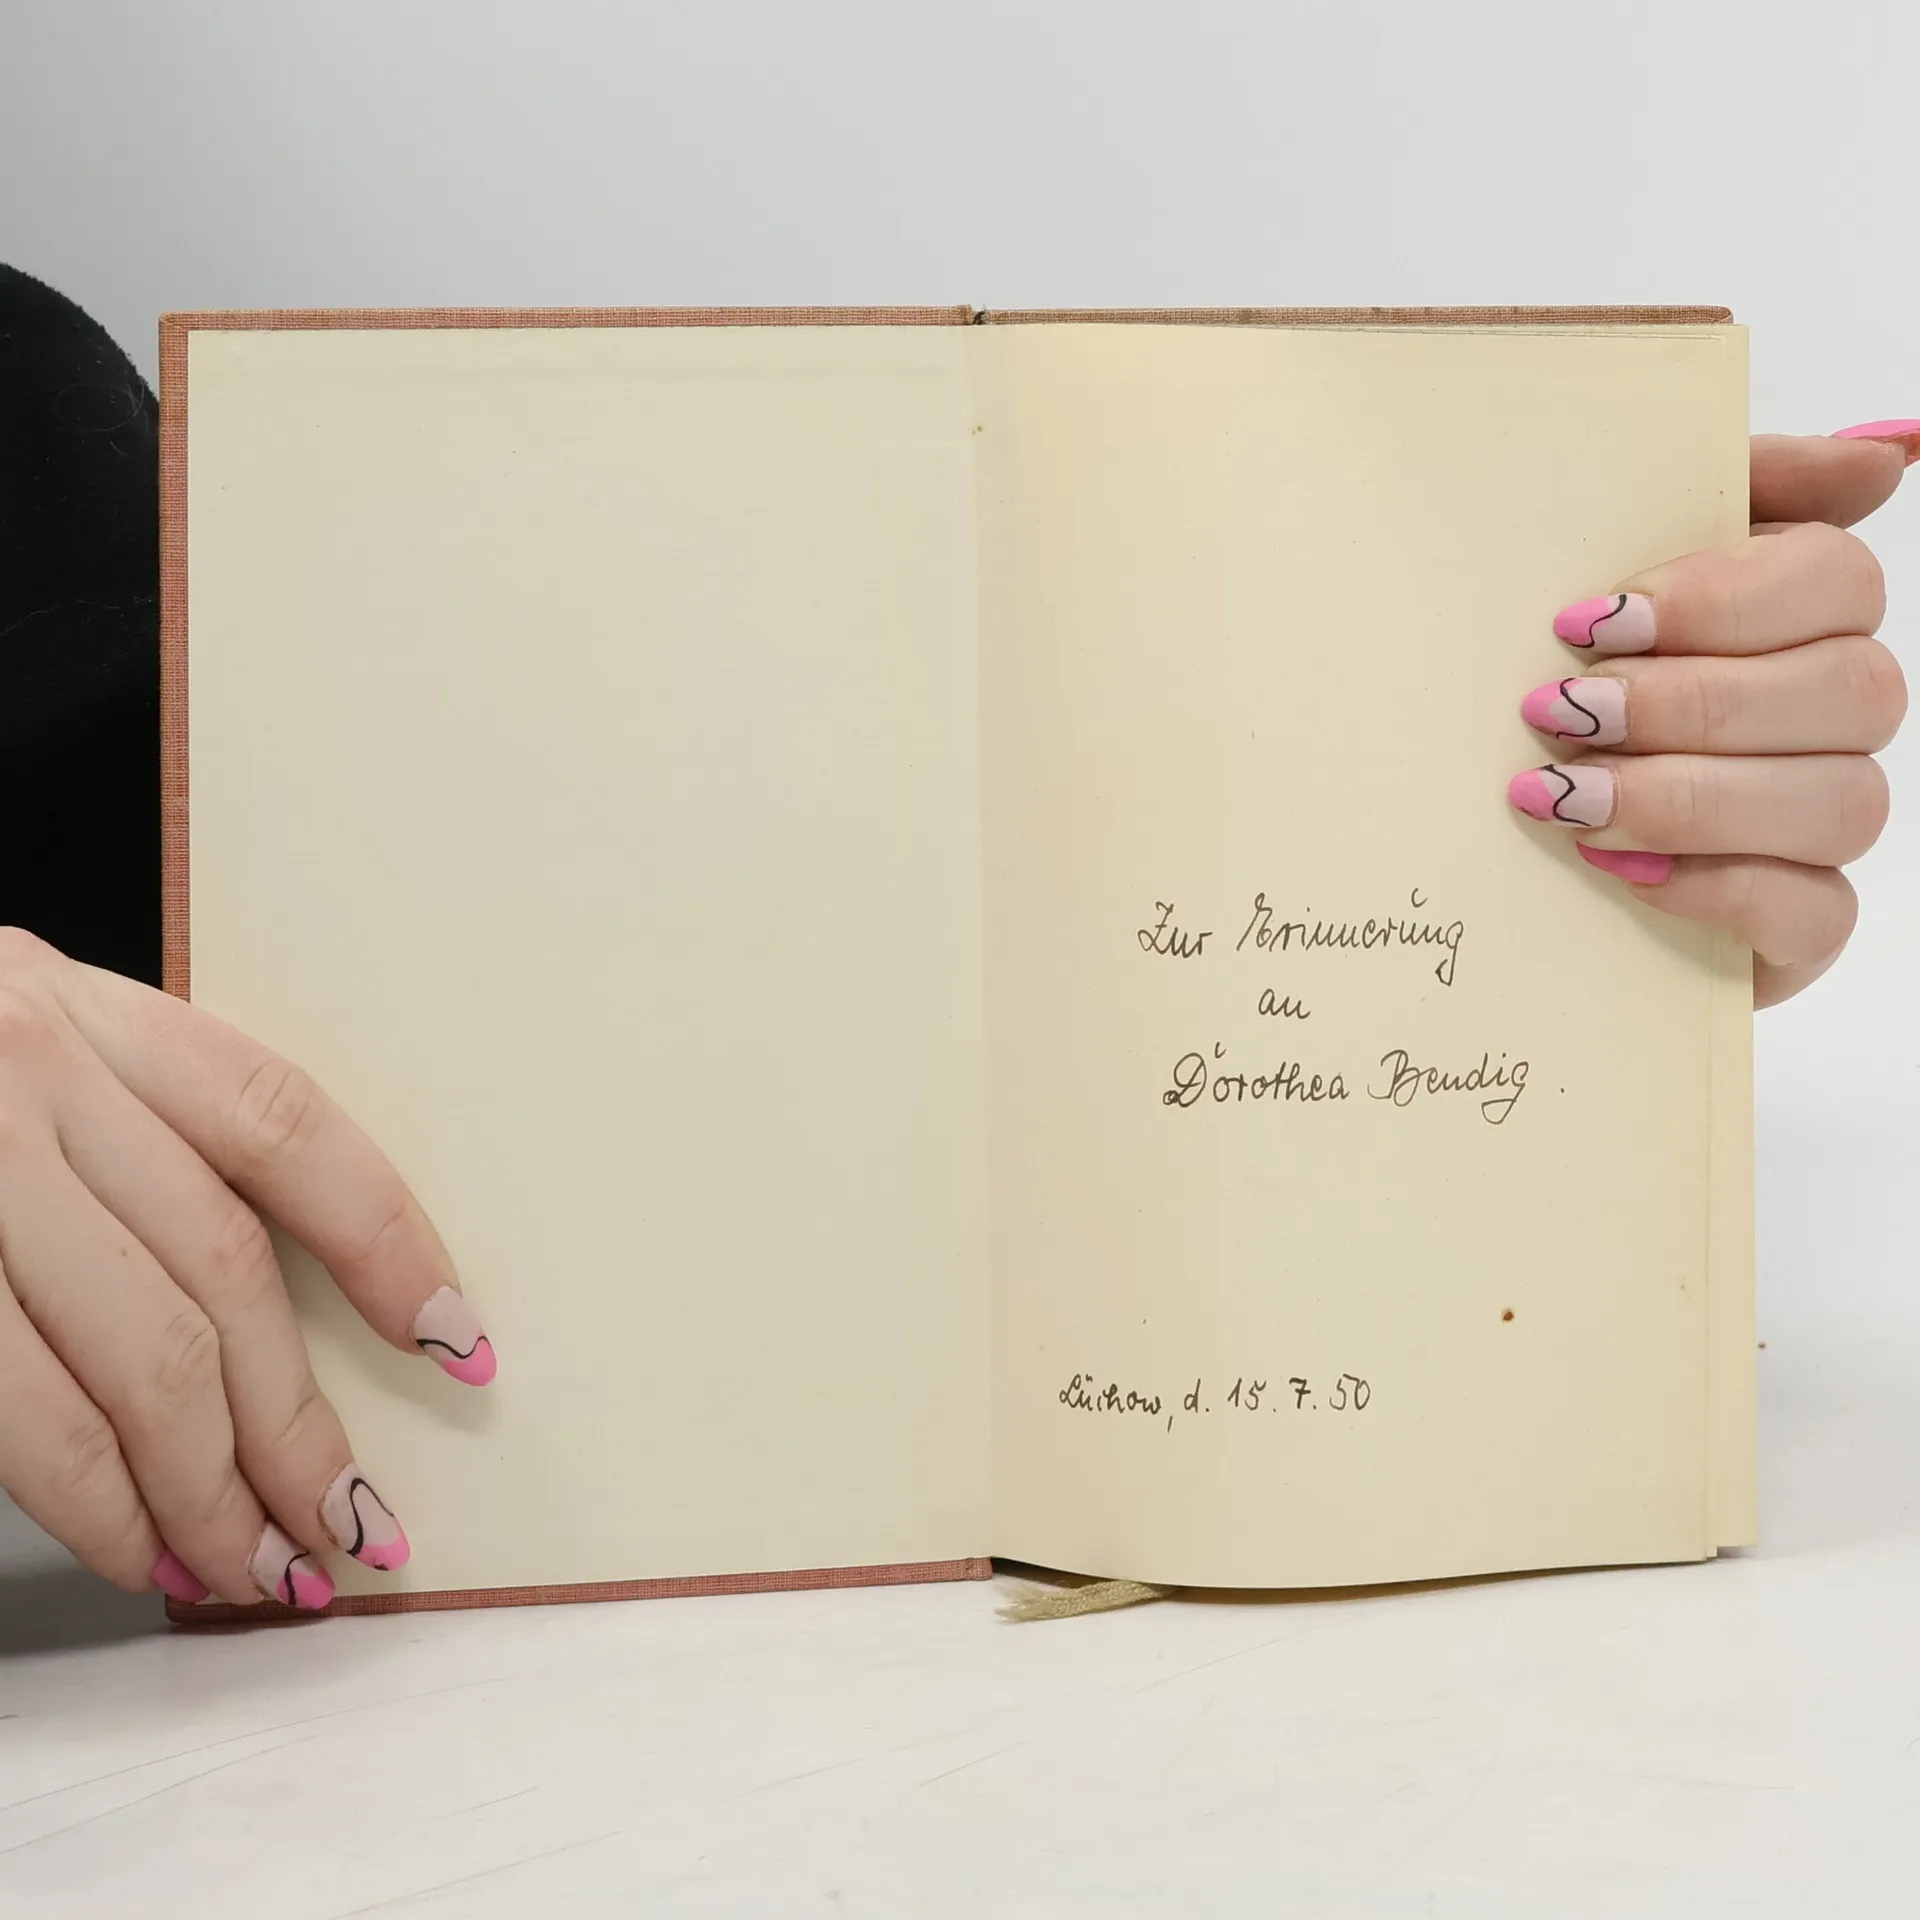 Zur Erinnerung
an
Dorothea Bendig.
Lüchow, d. 15. 7. 50